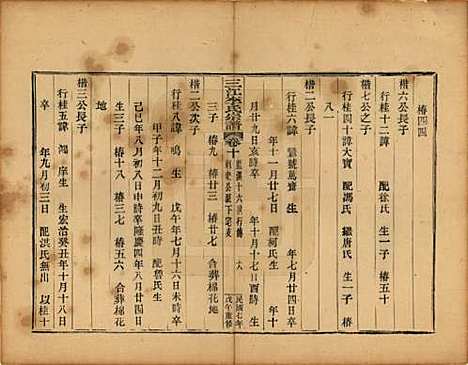 椿四四
楷六公長子
行桂十二諱　配徐氏　生一子　椿五十
楷七公之子
行桂四十諱大寶　配馮氏　繼唐氏　生一子　椿
八一
行桂六諱　號篤齋　生　年七月廿四日
年十一月廿日　配柯氏　生　年十
月廿九日亥時　年十月十七日
三子　椿九　椿廿三　合葬棉花地
三江李氏宗譜　卷十
民國七年
戊午重修
楷二公次子
行桂八諱　鳴　生　戊午年七月十六日未時　卒
甲子年十二月初九日丑時　配魯氏　生
己巳年八月初八日申時　卒　隆慶四年八月廿四日
生三子　椿十八　椿三七　椿五六　合葬棉花
地
楷三公長子
行桂五諱　鴻　序生　生　宏治癸丑年十月十八日
卒　年九月初三日　配洪氏　無出　以桂十